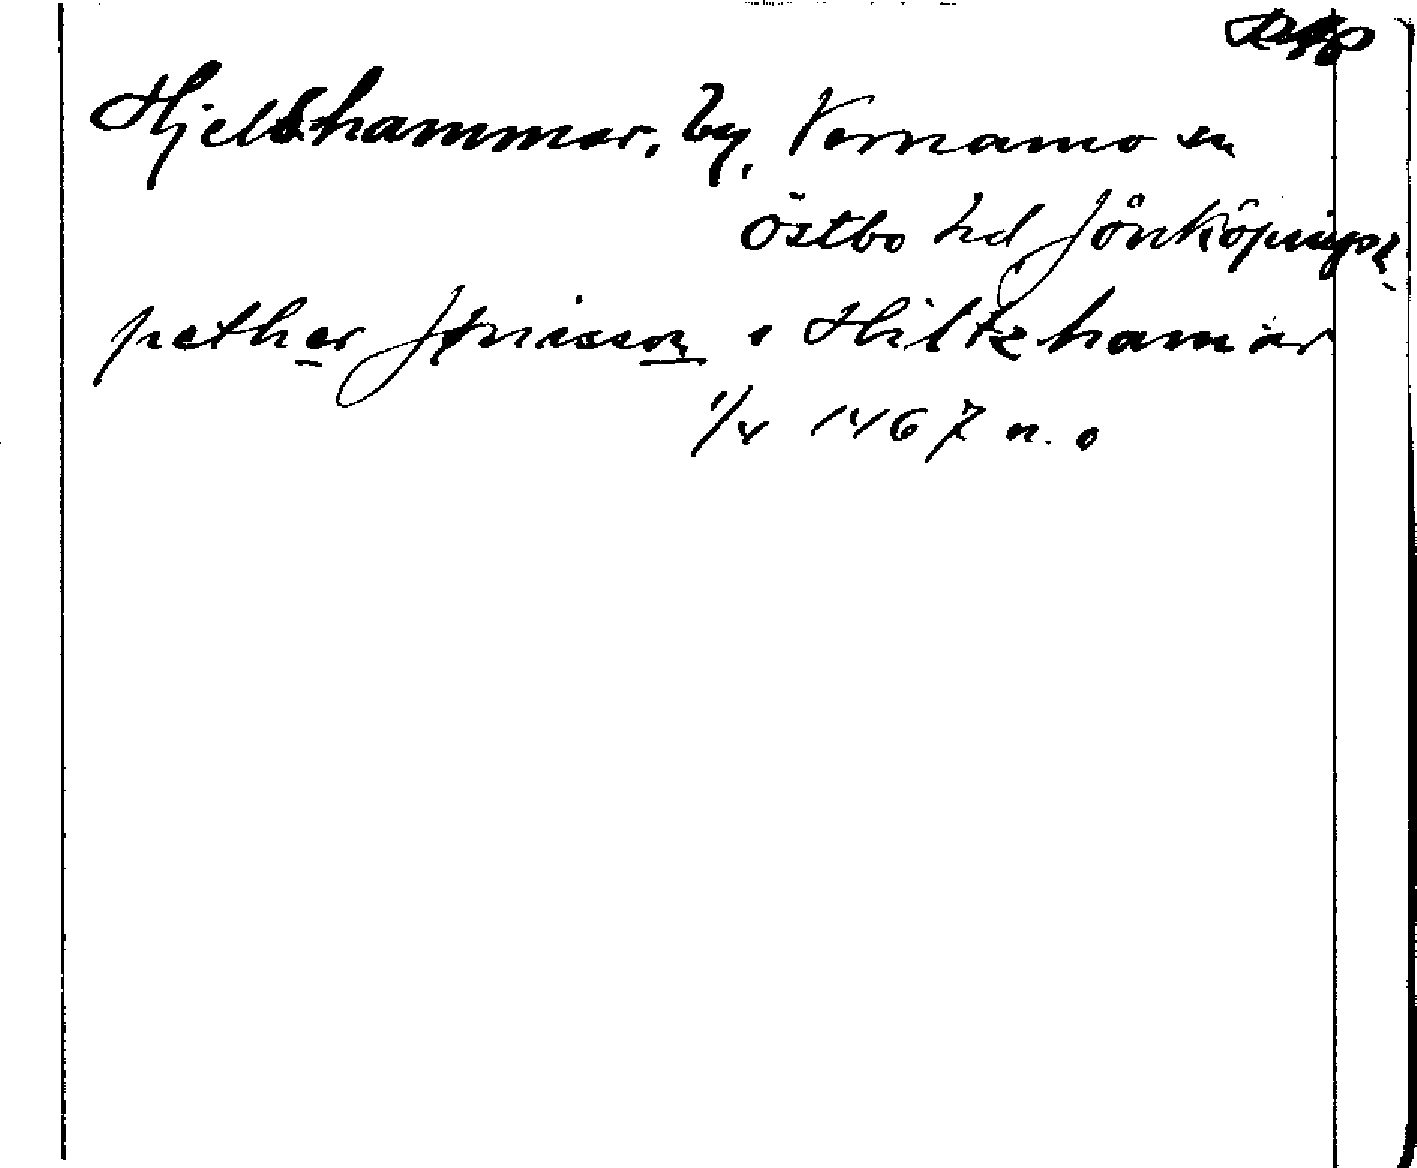 Hjelshammar, by, Vernamo sn
Östbo hd Jönköpings l.
pether Jønisson i Hiltzhamar
1/4 1467 n. o